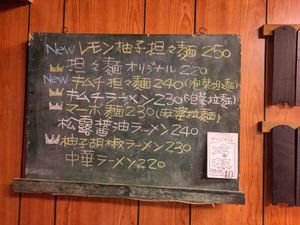 New レモン柚子担々麺 250
担々麺 オリジナル 220
New キムチ担々麺 240 (泡菜担麺)
キムチラーメン 230 (泡菜拉麺)
マーボ麺 230 (麻婆拉麺)
松露醤油ラーメン 240
柚子胡椒ラーメン 230
中華ラーメン 220